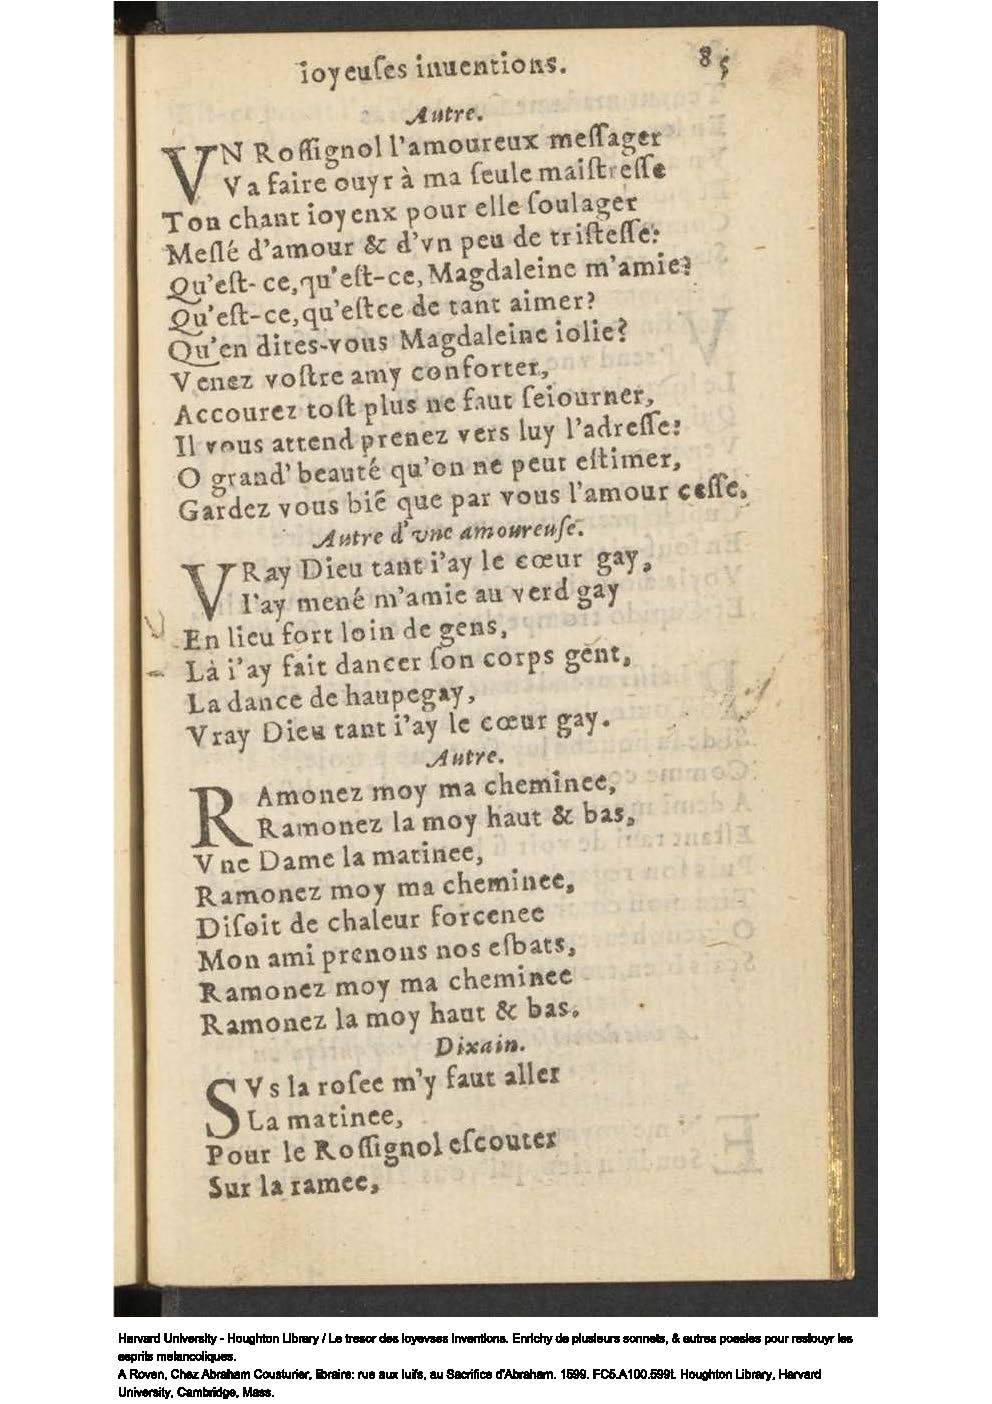 ioyeuſes inuentions. 85
Autre.
VN Roſſignol l'amoureux meſſager
Va faire ouyr à ma ſeule maiſtreſſe
Ton chant ioyenx pour elle ſoulager
Meſlé d'amour & d'vn peu de triſteſſe:
Qu'eſt-ce, qu'eſt-ce, Magdaleine m'amie?
Qu'eſt-ce, qu'eſtce de tant aimer?
Qu'en dites-vous Magdaleine iolie?
Venez voſtre amy conforter,
Accourez toſt plus ne faut ſeiourner,
Il vous attend prenez vers luy l'adreſſe:
O grand' beauté qu'on ne peut eſtimer,
Gardez vous biẽ que par vous l'amour ceſſe.
Autre d'vne amoureuſe.
VRay Dieu tant i'ay le cœur gay,
I'ay mené m'amie au verd gay
En lieu fort loin de gens,
Là i'ay fait dancer ſon corps gent,
La dance de haupegay,
Vray Dieu tant i'ay le cœur gay.
Autre.
RAmonez moy ma cheminee,
Ramonez la moy haut & bas,
Vne Dame la matinee,
Ramonez moy ma cheminee,
Diſoit de chaleur forcenee
Mon ami prenons nos eſbats,
Ramonez moy ma cheminee
Ramonez la moy haut & bas.
Dixain.
SVs la roſee m'y faut aller
La matinee,
Pour le Roſſignol eſcouter
Sur la ramee,
Harvard University - Houghton Library / Le tresor des ioyevses inventions. Enrichy de plusieurs sonnets, & autres poesies pour resiouyr les
esprits melancoliques.
A Roven, Chez Abraham Cousturier, libraire: rue aux Iuifs, au Sacrifice d'Abraham. 1599. FC5.A100.599t. Houghton Library, Harvard
University, Cambridge, Mass.